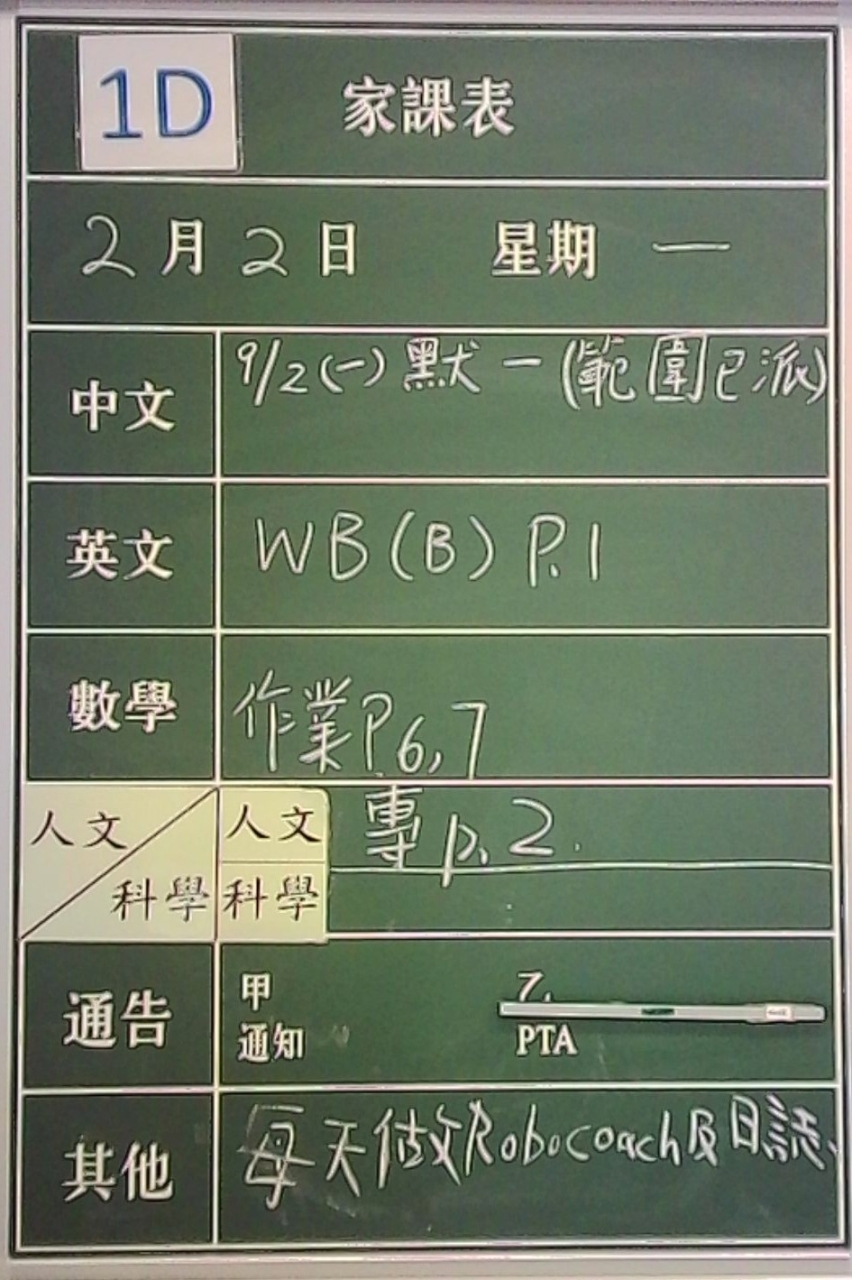 1D 家課表
2月2日 星期一
中文 9/2(一)默一(範圍已派)
英文 WB(B) P.1
數學 作業P.6,7
人文 科學 人文 專p.2.
科學
通告 甲 乙
通知 PTA
其他 每天做Robocoach及日誌、